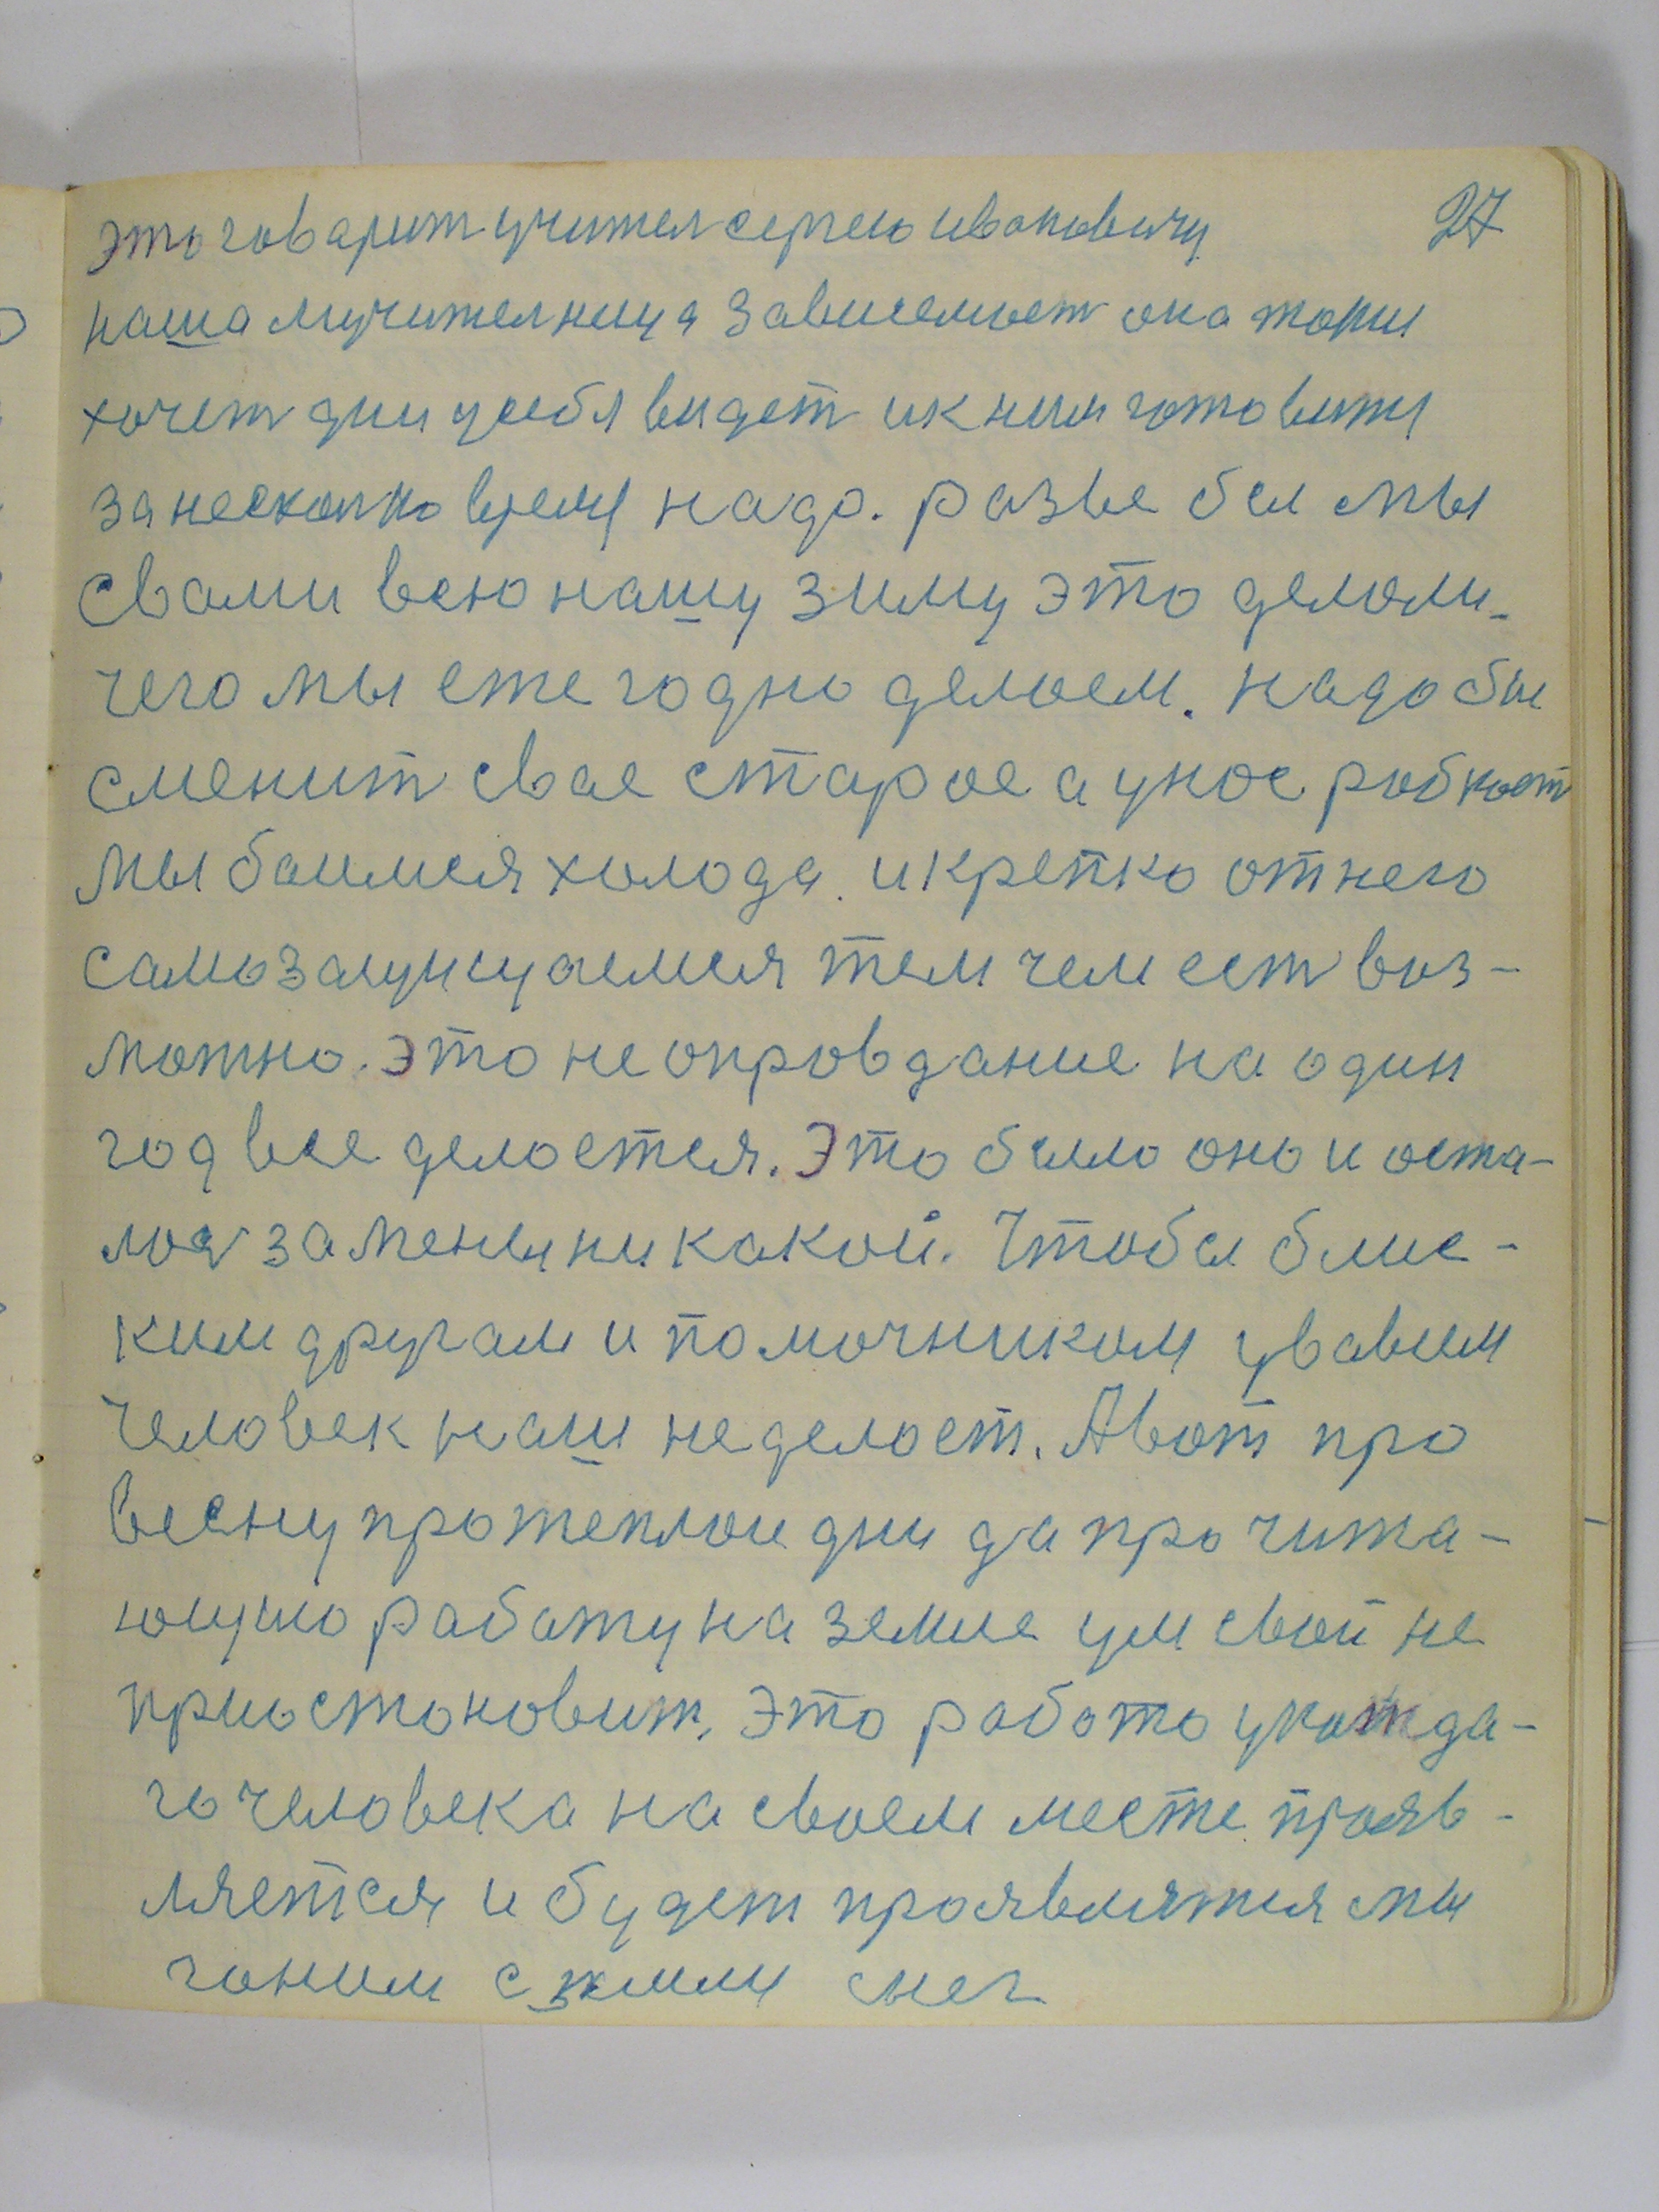 27
это говарит учител сергею ивановичу
наша мучителница зависемост она тоже
хочет дни у себя видет и к ним готовитц
за несколко время надо. разве бы мы
свами всю нашу зиму это делоли.
чего мы ежегодно делоем. надо бы
сменит свае старое а у нос робкост
мы боимся холода. и крепко от него
самозащищаемся тем чем ест воз-
можно. это не опровдание на один
год все делоется. Это было оно и оста-
лос замены никакой. Чтобы блис-
ким другам и помочником увавем
человек наш не делоет. А вот про
весну про теплои дни да про чита-
ющию работу на земле ум свой не
приостоновит. Это робото укажда-
го человека на своем месте прояв-
ляется и будет проявлятся мы
гоним с земли снег